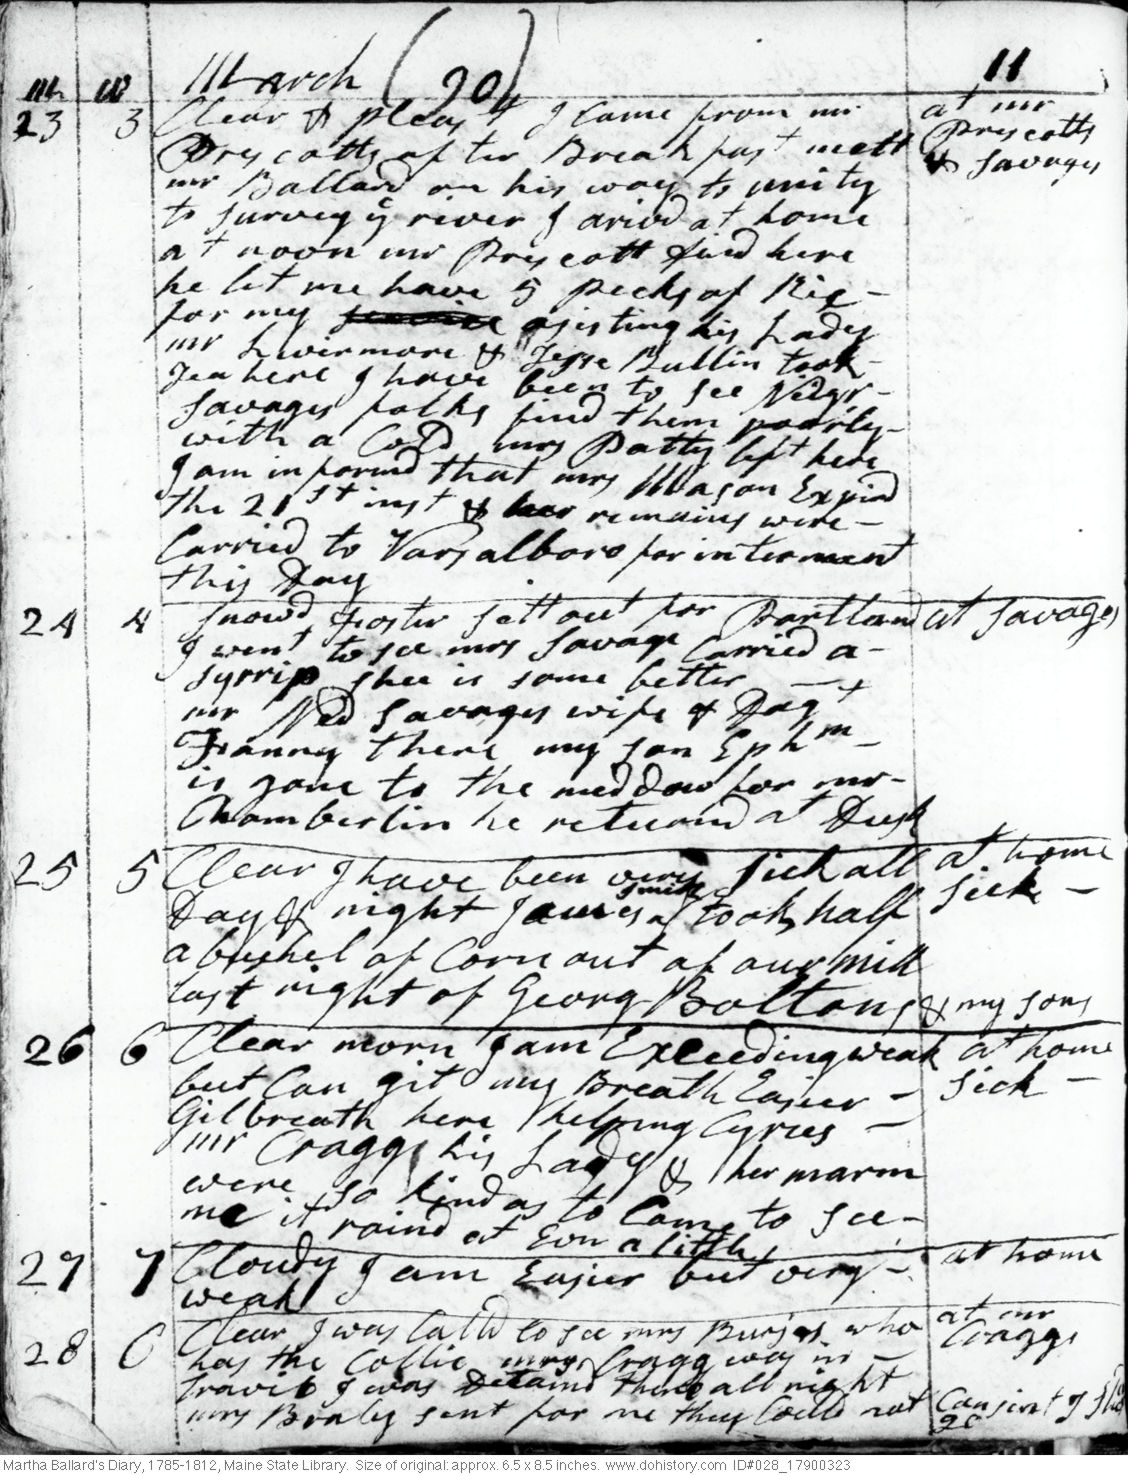 March (90) 11
m w
23 3 Clear & pleast I came from mr at mr
Prescotts after Breakfast mett Prescotts
mr Ballard on his way to unity & Savages
to survey ye river I arivd at home
at noon mr Prescott dind here
he let me have 5 pecks of Rie -
for my asisting his Lady
mr Livermore & Jesse Bullin took -
Tea here I have been to see Neigr -
Savages folks find them poorly -
with a Cold mrs Patty left here
I am informd that mrs Mason Expird
the 21st inst & her remains were -
Carried to Varsalboro for interment
this Day
24 4 Snowd Foster sett out for Portland at Savages
I went to see mrs Savage Carried a -
syrrip shee is some better -
mr Ned Savages wife & Dagt
Franny there my son Ephm -
is gone to the meddow for mr -
Chamberlin he returnd at Dusk
25 5 Clear I have been very sick all at home
Day & night James smith took half sick -
a bushel of Corn out of our mill
last night of Georg Boltons & my sons
26 6 Clear morn I am Exceeding weak at home
but Can git my Breath Easier - sick -
Gilbreath here helping Cyrus -
mr Cragg his Lady & her marm
were so kind as to Come to see -
me it raind at Evn a little
27 7 Cloudy I am Easier but very - at home
weak
28 C Clear I was Calld to see mrs Burjes who at mr
has the Collic mrs Cragg was in - Craggs
Travil I was Detaind there all night
mrs Braly sent for me they Could not